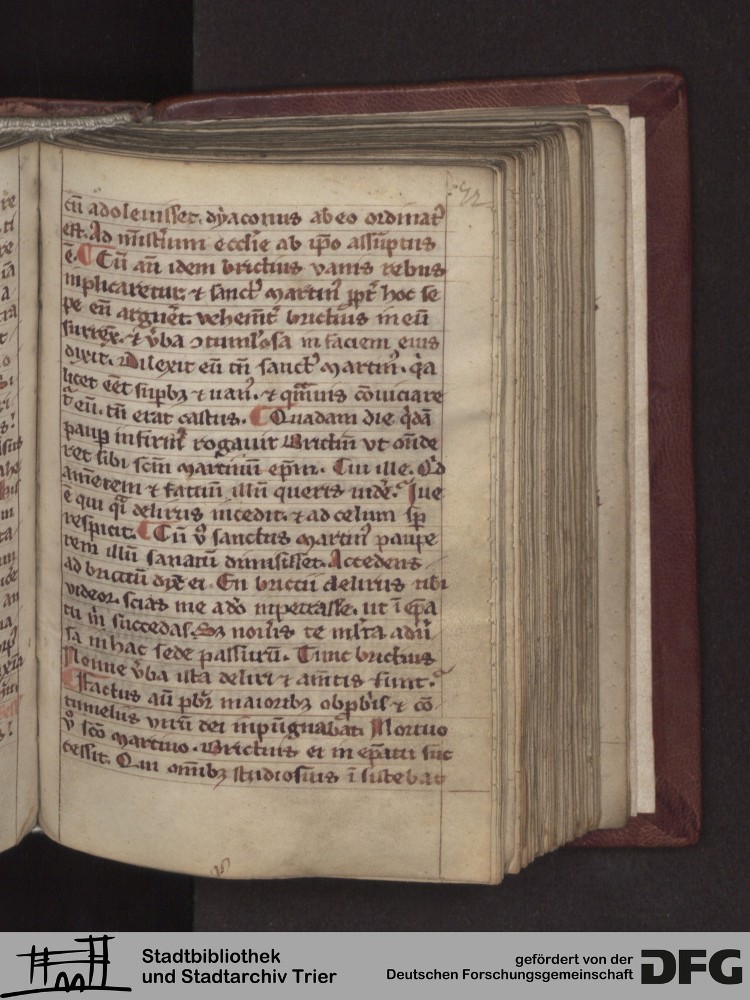 cū adoleuisset. dyaconus ab eo ordinatꝰ
est. Ad mīsťium eccl̄ie ab ip̄o assūptus
ē. Cū aū idem brictius vanis rebus
implicaretur. ⁊ sanctꝰ Martinꝰ ꝓpt̕ hoc se
pe eū arguēt. vehem̄t brictius in eū
surrex̄. ⁊ v̕ba ↄtumlosa in faciem eius
dixit. Dilexit eū tn̄ sanctꝰ Martinꝰ. q̇a
licet eēt supb̕ꝫ ⁊ uanꝰ. ⁊ qm̄uis cōuiciare
t̕ eū. tn̄ erat castus. Quadam die q̇dā
paup̲ infirmꝰ rogauit Brictiū vt on̄de
ret sibi sc̄m Martinū ep̄m. Cui ille. Q̇d
amētem ⁊ fatuū illū queris uide. Iue
ē qui q̇ delirus incedit. ⁊ ad celum sp̲
respicit. Cū v̊ sanctus Martinꝰ paupe
rem illū sanatū dimisisset. Accedens
ad brictiū dix̄ ei. En brictiū delirus tibi
videor. scias me adō inpetrasse. ut ī ep̄a
tu m̊ succedas. Sꝫ noūis te ml̄ta adū̕
sa in hac sede passurū. Tunc brictius
Nonne v̕ba ista deliri ⁊ amētis sunt.
Factus aū pb̄r maioribꝫ obprob̕is ⁊ cō
tumeliis virū dei inpūgnabat. Mortuo
v̊ sc̄o Martino. Brictius ei in ep̄atu suc
cessit. Qui om̄ibꝫ studiosius īsistebat
Stadtbibliothek
und Stadtarchiv Trier
gefördert von der
Deutschen Forschungsgemeinschaft
DFG